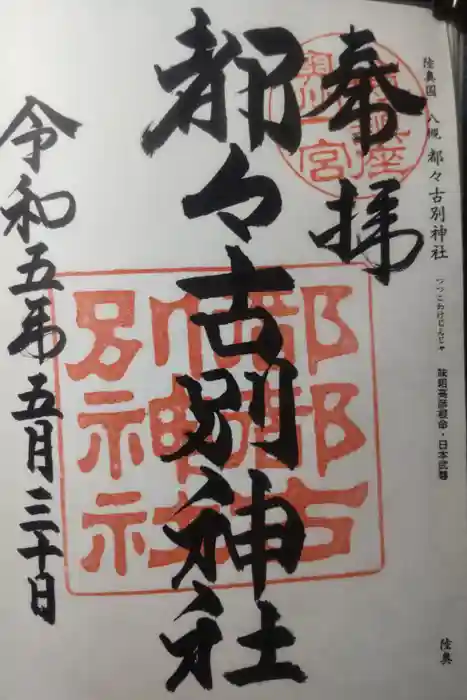 陸奥国 八槻 都々古別神社
つつこわけじんじゃ
味耜高彦根命・日本武尊
陸奥
奉拝
奥州一宮
都々古別神社
都都古別神社
令和五年五月三十日